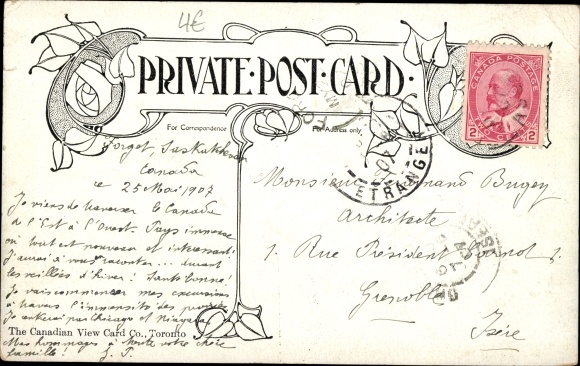 4€
PRIVATE·POST·CARD·
CANADA POSTAGE
2 2
TWO CENTS
For Correspondence
For Address only
Forget, Saskatchewan
Canada
le 25 Mai 1907
Je viens de traverser le Canada
de l'Est à l'Ouest. Pays immense
où tout est nouveau et intéressant.
J'aurai à vous raconter... durant
les veillées d'hiver! Santé bonne!
Je vais commencer mes excursions
à travers l'immensité des prairies
Je rentrerai par Chicago et Niagara
Mes hommages à toute votre chère
famille!
Monsieur Bugey
Architecte
1. Rue Président Carnot 1.
Grenoble
Isère
ETRANGER
The Canadian View Card Co., Toronto